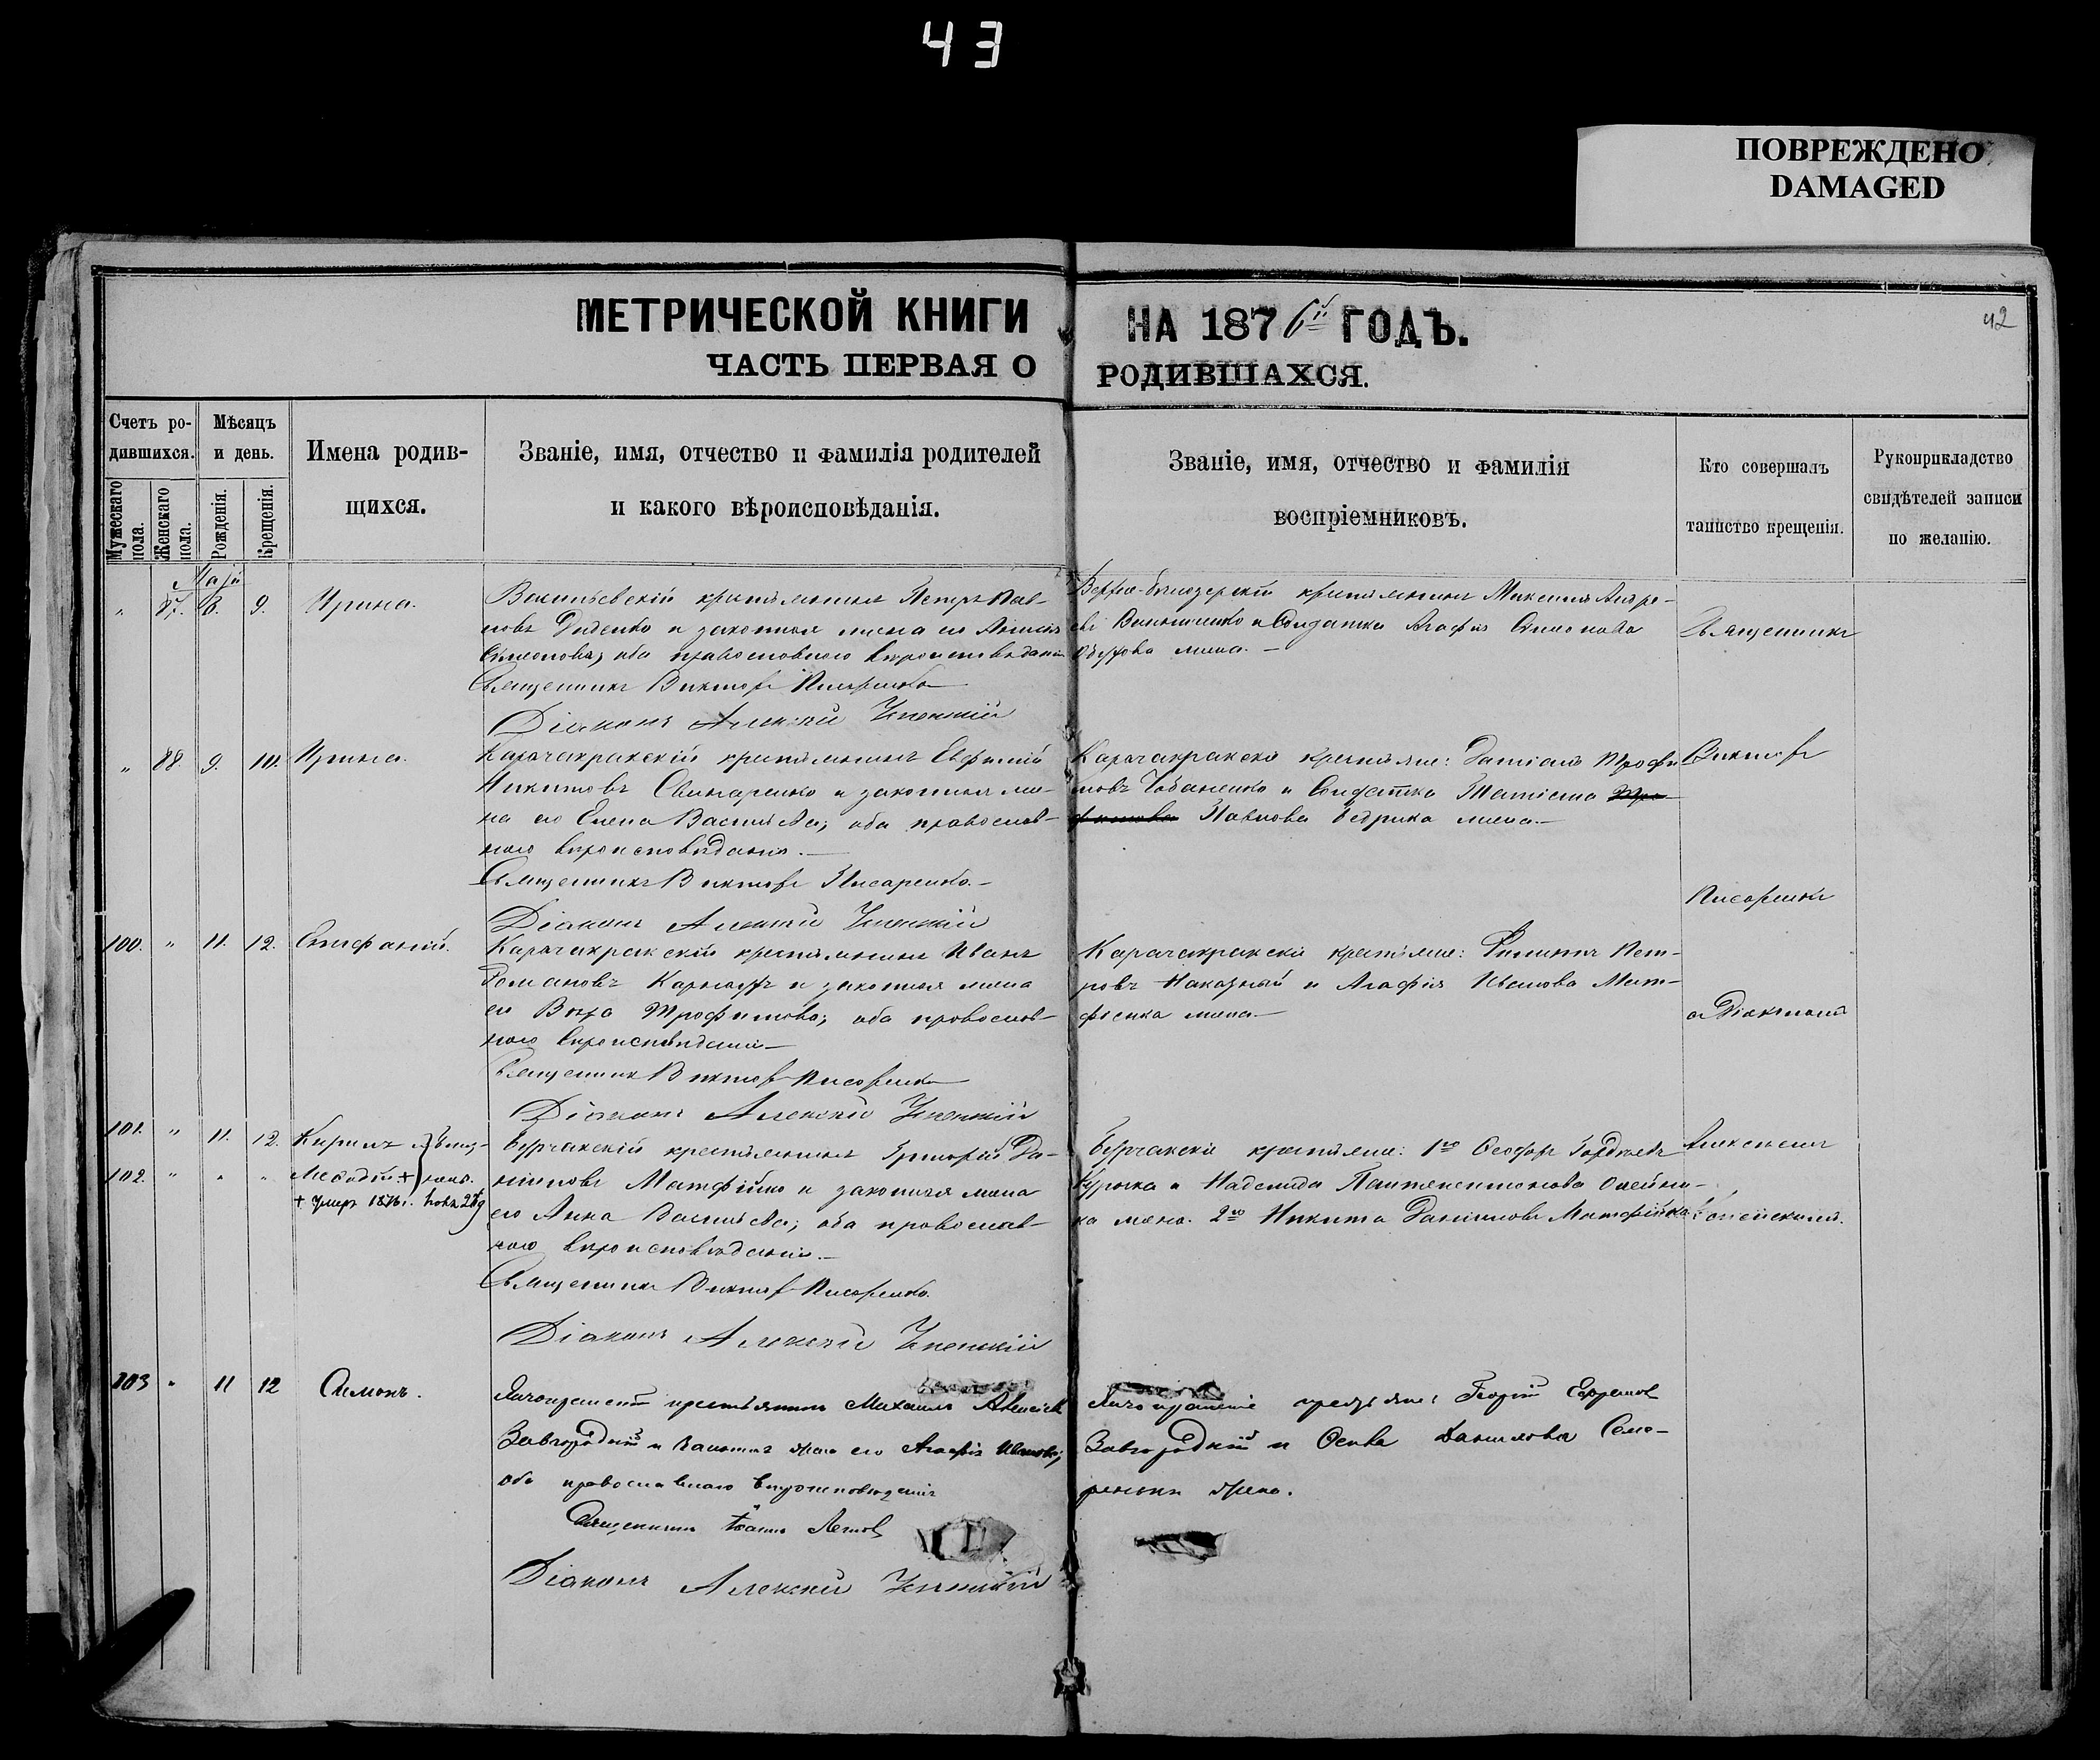 43
ПОВРЕЖДЕНО
DAMAGED
МЕТРИЧЕСКОЙ КНИГИ НА 1876й ГОДЪ.
42
ЧАСТЬ ПЕРВАЯ О РОДИВШАХСЯ.
Счетъ ро-
дившихся.
Мужескаго пола.
Женскаго пола.
Мѣсяцъ
и день.
Рожденія.
Крещенія.
Имена родив-
щихся.
Званіе, имя, отчество и фамилія родителей
и какого вѣроисповѣданія.
Званіе, имя, отчество и фамилія
воспріемниковъ.
Кто совершалъ
таинство крещенія.
Рукоприкладство
свидѣтелей записи
по желанію.
Май
" 87. 8. 9. Ирина.
Васильевскій крестьянинъ Петръ Пав-
ловъ Диденко и законная жена его
Симеонова, оба православного вѣроисповѣданія
Священникъ Викторъ Писаренко
Діаконъ Алексій Успенскій
крестьянинъ Максимъ Андре-
евъ и Солдатка Агафія Симонова
жена.
Священникъ
" 88. 9. 10. Ирина.
Карачакракскій крестьянинъ Евфимій
Никитовъ Свинаренко и законная же-
на его Елена Васильева; оба православ-
ного вѣроисповѣданія.
Священникъ Викторъ Писаренко.
Діаконъ Алексій Успенскій
Карачакракскіе крестьяне: Даміанъ Трофи
мовъ Чабаненко и Солдатка Татіана Тро-
фимова Павлова Бедрика жена.
Викторъ
Писаренко
100. " 11. 12. Епифаній.
Карачакракскій крестьянинъ Иванъ
Романовъ и законная жена
его Вѣра Трофимова; оба православ-
ного вѣроисповѣданія
Священникъ Викторъ Писаренко
Діаконъ Алексій Успенскій
Карачакракскіе крестьяне: Филиппъ Пет-
ровъ Наказный и Агафія Иванова Мат-
фіенка жена.
съ Діакономъ
101. " 11. 12. Кирилъ и близ-
102. " " " Мефодій + нец.
+ умеръ 1876 г.
Бурчакскій крестьянинъ Григорій Да-
ніиловъ Матфійко и законная жена
его Анна Васильева; оба православ-
ного вѣроисповѣданія.
Священникъ Викторъ Писаренко.
Діаконъ Алексій Успенскій
Бурчакскіе крестьяне: 1го Ѳеодоръ Гордѣевъ
Курочка и Надежда Пантелеимонова Олейни-
ка жена. 2го Никита Даніиловъ Матфійко
Алексіемъ
Успенскимъ.
103 " 11 12 Симонъ.
крестьянинъ Михаилъ Алексіевъ
Завгородній и законная жена его Агафія Иванова;
оба православнаго вѣроисповѣданія
Священникъ Іоаннъ
Діаконъ Алексій Успенскій
крестьяне: Георгій Ефремовъ
Завгородній и Данилова Сама-
жена.